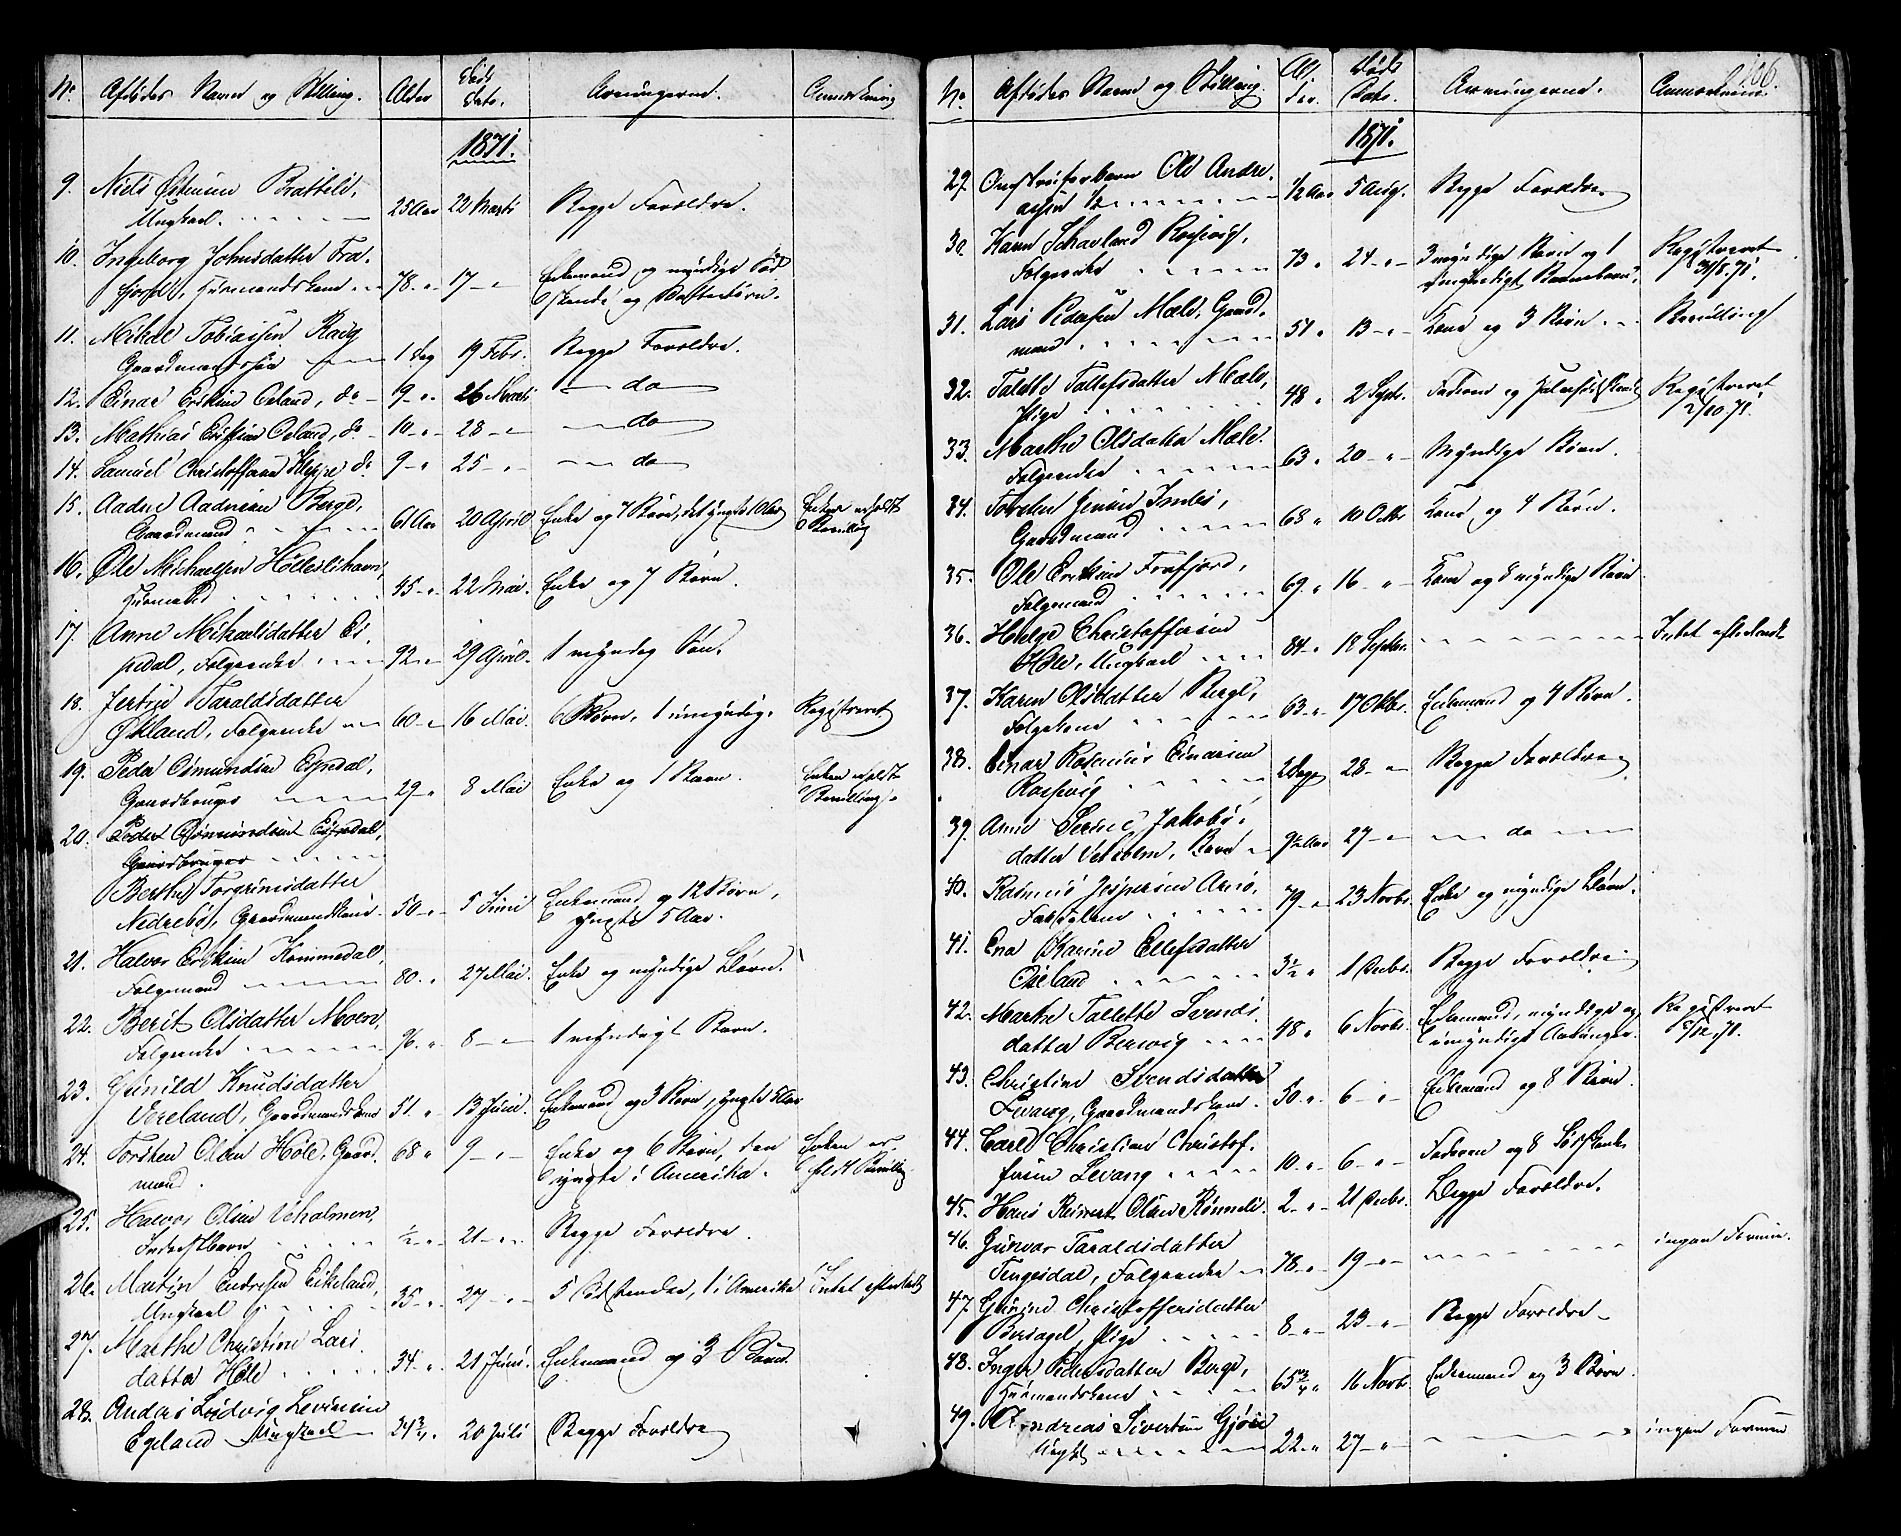 No. Afdødes Navn og Stilling. Alder Døds Dato. Arvingerne. Anmærkning
1871.
9. Niels Osmunsen Brattelid,
Ungkarl. 25 Aar 22 Marts Begge Forældre.
10. Ingeborg Johnsdatter Fra-
fjord, Huusmandskone 78 " 17 - " Enkemand og myndige Sød-
skende og Søsterbørn.
11. Mikal Tobiassen Raeg
Gaardmandssøn 1 Dag 19 Febr. Begge Forældre.
12. Einar Eriksen Oeland, do 9 - " 26 Marts do
13. Mathias Eriksen Oeland, do 10 - " 28 - " do
14. Samuel Christoffersen Kleppe do 9 - " 25 - " do
15. Aadne Aadnesen Berge,
Gaardmand 61 Aar 20 April Enke og 7 Børn, det yngste 10 Aar Enken erholdt
Bevilling
16. Ole Michaelsen Hølleslihavn,
Huusmand 45 - " 22 Mai Enke og 7 Børn.
17. Anne Mikaelsdatter Es-
pedal, Folgeenke 92 - " 29 April. 1 myndig Søn.
18. Jertrud Taraldsdatter
Øikland, Folgeenke 60 - " 16 Mai. 6 Børn, 1 umyndig. Registreret
19. Peder Osmundsen Espedal,
Gaardbruger 29 - " 8 Mai Enke og 1 Barn. Enken erholdt
Bevilling.
20. Peder Osmundsen Espedal,
Gaardbruger
Berthe Torgrimsdatter
Nedrebø, Gaardmandskone. 50 - " 5 Juni Enkemand og 12 Børn,
yngste 5 Aar.
21. Halvor Eriksen Kommedal,
Folgemand 80 " 27 Mai. Enke og myndige Børn.
22. Berit Olsdatter Moen,
Folgeenke 96 " 8 - " 1 myndigt Barn.
23. Gunild Knudsdatter
Vereland, Gaardmandskone 51 " 13 Juni. Enkemand og 3 Børn, yngste 5 Aar
24. Torsten Olsen Høle, Gaard-
mand. 68 " 9 - " Enke og 6 Børn, den
yngste i Amerika. Enken er-
holdt Bevilling
25. Halvor Olsen Veholmen,
Inderstbarn ½ - " 21 - " Begge Forældre.
26. Martin Endresen Eikeland,
Ungkarl 35 - " 27 - " 5 Sødskende, 1 i Amerika Intet efterladt
27. Marthe Christine Lars-
datter Høle 34 " 21 Juni. Enkemand og 3 Børn.
28. Anders Ludvig Levinsen
Egeland Ungkarl 24¾ " 20 Juli Begge Forældre
166.
No. Afdødes Navn og Stilling. Al-
der. Døds Dato. Arvingerne. Anmærkning.
1871.
29. Ole Andre-
assen ½ Aar 5 Aug. Begge Forældre
30. Karen Schavland Rossevig,
Folgeenke 73 " 24 - " 3 myndige Børn og 1
umyndigt Barnebarn. Registreret
31/8. 71.
31. Lars Pedersen Mæle, Gaard-
mand 51 " 13 - " Kone og 3 Børn Bevilling
32. Talette Tallefsdatter Mæle,
Pige 48 " 2 Septr. Faderen og Halvsødskende Registreret
2/10 71.
33. Marthe Olsdatter Mæle.
Folgeenke 63 " 20 - " Myndige Børn.
34. Torsten Jensen Imles,
Gaardmand 68 " 10 Octbr. Kone og 4 Børn.
35. Ole Eriksen Frafjord,
Folgemand 69 " 16 " Kone og 8 myndige Børn
36. Helge Christoffersen
Høle, Ungkarl 84 - " 18 Septbr. Intet efterladt
37. Karen Olsdatter Berge,
Folgekone 63 - " 17 Oktbr. Enkemand og 4 Børn.
38. Einar Rasmus Einarsen
Rossevig 2 Dage 28 - " Begge Forældre
39. Anne Serine Jakobs-
datter Veholm, Barn 9½ Aar 27 - " do
40. Rasmus Jespersen Arnø,
79 - " 23 Novbr. Enke og myndige Børn.
41. Ena Karine Ellefsdatter
Oieland 3½ " 1 Decbr. Begge Forældre
42. Marthe Tallette Svends-
datter Bersvig 48 " 6 Novbr. Enkemand, myndige og
umyndige Arvinger. Registreret
5/12. 71.
43. Christine Svendsdatter
Levang, Gaardmandskone. 50 " 6 - " Enkemand og 8 Børn.
44. Carl Christian Christof-
fersen Levang 10 - " 6 - " Faderen og 8 Sødskende
45. Hans Reinert Olsen Rønneli. 2 - " 21 Decbr. Begge Forældre.
46. Gurvor Taraldsdatter
Tengesdal, Folgeenke 78 - " 19 - " ingen Formue.
47. Gurine Christoffersdatter
Bersagel, Pige 8 - " 23 - " Begge Forældre
48. Inger Pedersdatter Berge,
Huusmandskone 65¾ " 16 Novbr. Enkemand og 3 Børn.
49. Andreas Sivertsen Gjøse
22 - " 27 - " ingen Formue